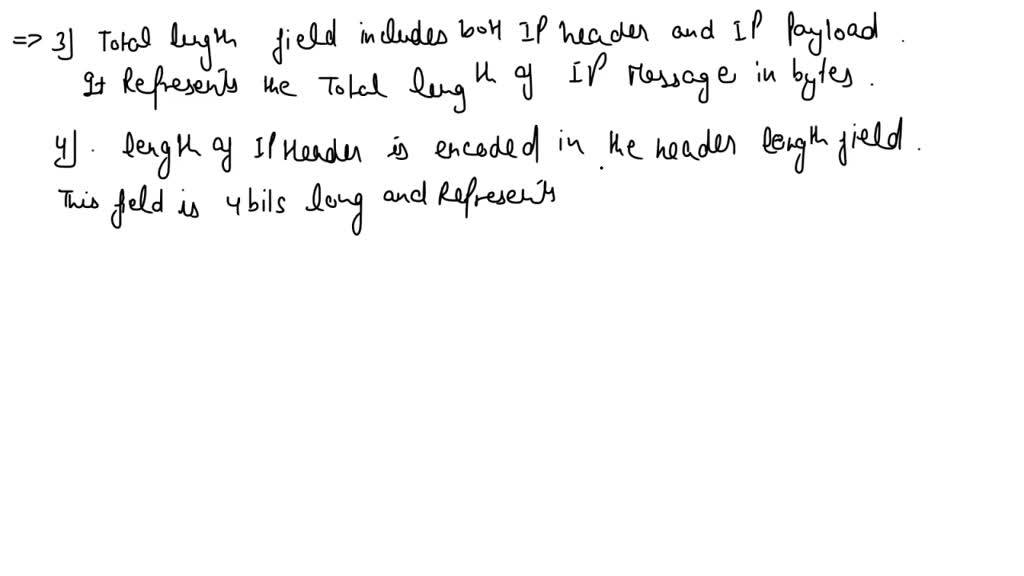 => 3] Total length field includes both IP header and IP Payload.
It Represents the Total length of IP Message in bytes.
4]. length of IP Header is encoded in the header length field.
This field is 4 bits long and Represents